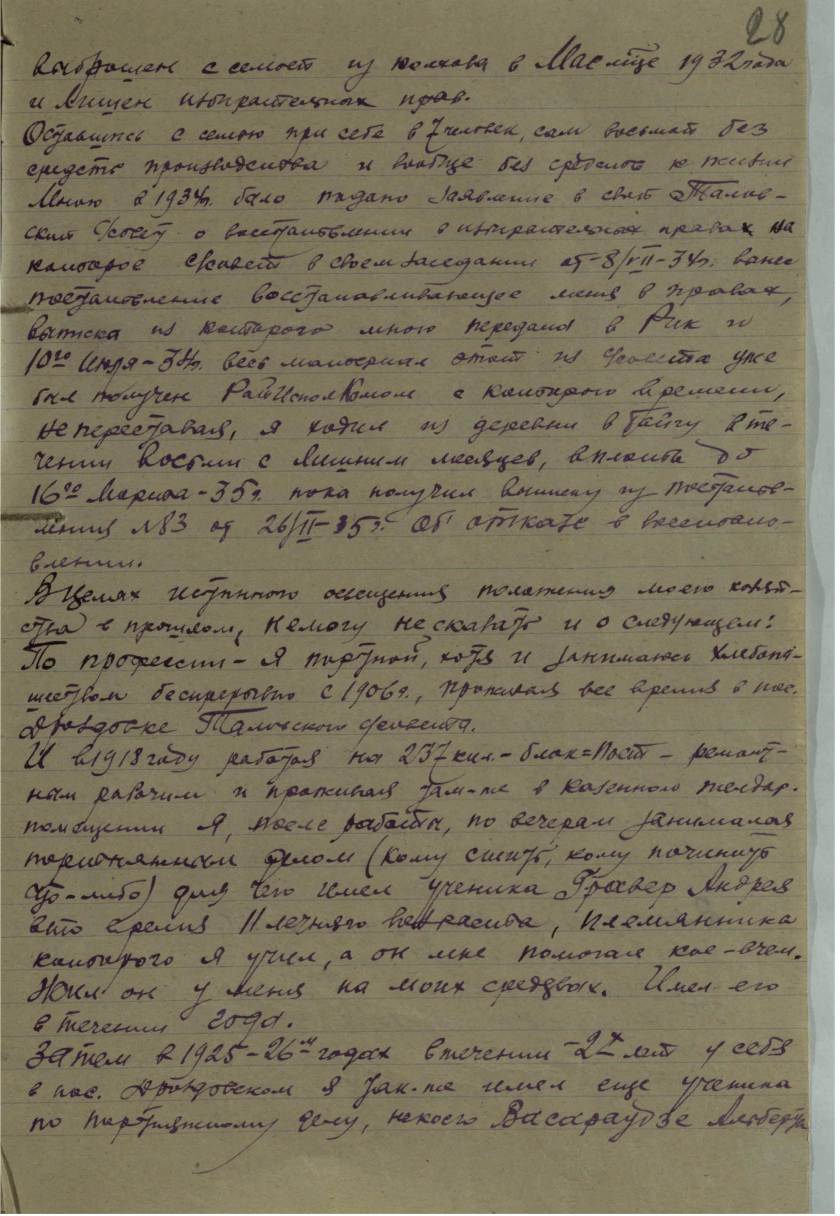 28
выброшен с семьей из колхоза в Мае м-це 1932 года
и лишен избирательных прав.
Оставшись с семьею при себе в 7 человек, сам восьмой без
средств производства и вообще без средств к жизни
Мною в 1934г. было подано заявление в свой Талов-
ский С/совет о восстановлении в избирательных правах на
которое С/совет в своем заседании от 8/VII-34г. вынес
постановление восстанавливающее меня в правах,
выписка из которого мною передана в Рик и
10го Июля-34г. весь материал этот из С/совета уже
был получен РайИсполКомом с которого времени,
не переставая, я ходил из деревни в Тайгу в те-
чении восьми с лишним месяцев, вплоть до
16го Марта-35г. пока получил выписку из постанов-
ления №83 от 26/II-35г. об отказе в восстано-
влении.
В целях истинного освещения положения моего хозяй-
ства в прошлом, не могу не сказать и о следующем:
По профессии - я портной, хотя и занимаюсь хлебопа-
шеством беспрерывно с 1906г., проживая все время в пос.
Таловского С/совета.
И в 1918 году работая на 237 кил.-блок=Пост - ремонт-
ным рабочим и проживая там-же в казенном
помещении я, после работы, по вечерам занимался
портняжным делом (кому сшить, кому починить
что-либо) для чего имел ученика Гравер Андрея
в то время 11 летнего возраста, племянника
которого я учил, а он мне помогал кое-в чем.
Жил он у меня на моих средствах. Имел его
в течении года.
Затем в 1925-26м годах в течении 2х лет у себя
в пос. я так-же имел еще ученика
по портняжному делу, некоего Альберта